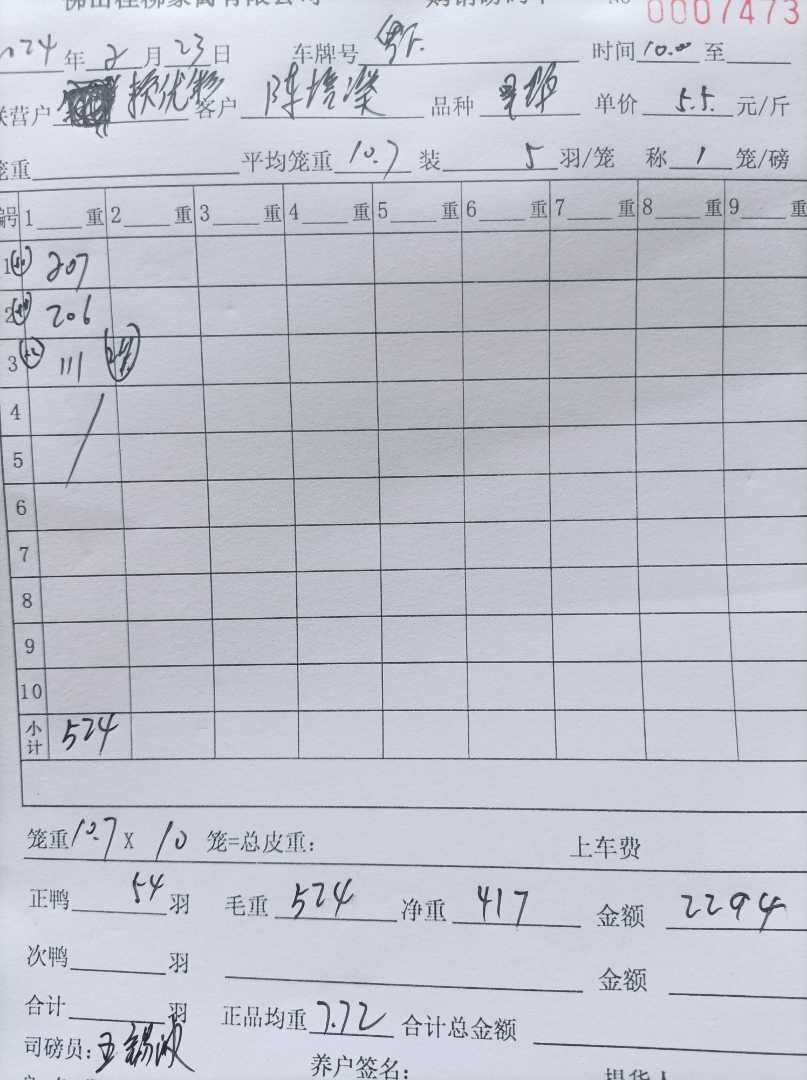 佛山桂柳家禽有限公司 购销磅码单 NO 0007473
2024年2月23日 车牌号 时间10.00至
联营户 客户 陈 品种 单价 5.5 元/斤
笼重 平均笼重 10.7 装 5 羽/笼 称 1 笼/磅
编号 1 重 2 重 3 重 4 重 5 重 6 重 7 重 8 重 9 重
1 207
2 206
3 111
4
5
6
7
8
9
10
小计 524
笼重 10.7 X 10 笼=总皮重: 上车费
正鸭 54 羽 毛重 524 净重 417 金额 2294
次鸭 羽 金额
合计 羽 正品均重 7.72 合计总金额
司磅员: 王锡波
养户签名: 提货人